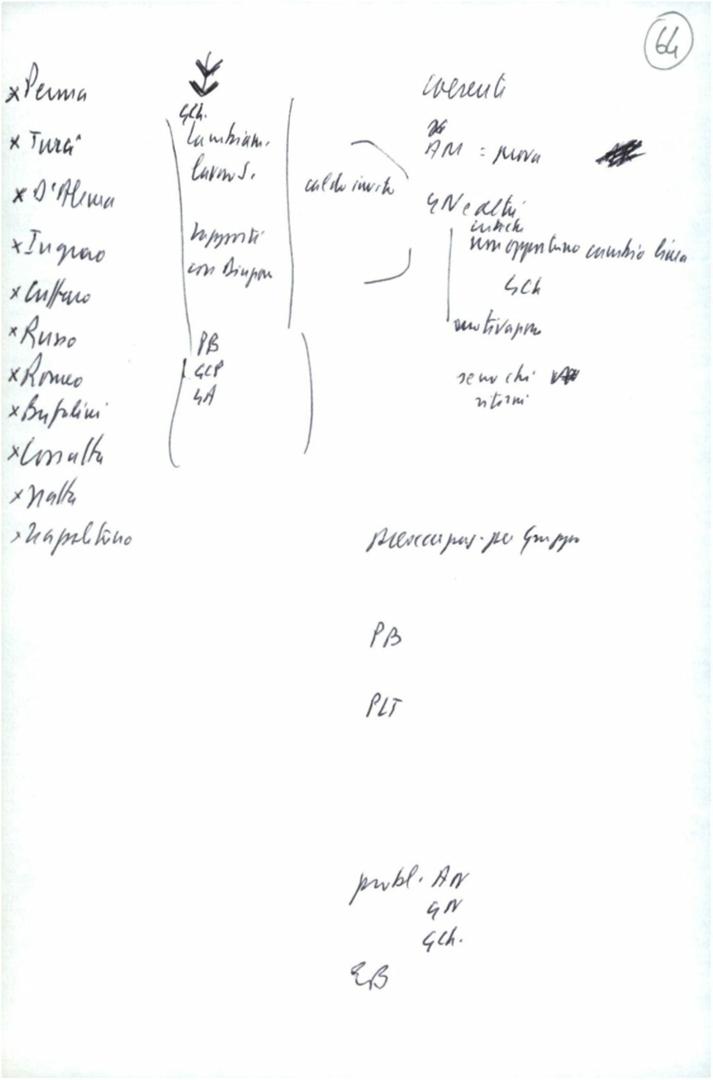 64
x Perna
x Turci
x D'Alema
x Ingrao
x Cuffaro
x Russo
x Romeo
x Bufalini
x Cossutta
x Natta
x Napolitano
GCh.
Cambiam.
lavoro S.
rapporti
con
PB
GCP
GA
caldo invito
coerenti
AM = prova
GN e altri
non opportuno cambio linea
GCh
motivazione
se no chi
ritorni
preoccupaz. per Gruppo
PB
PLT
probl. AN
GN
GCh.
EB